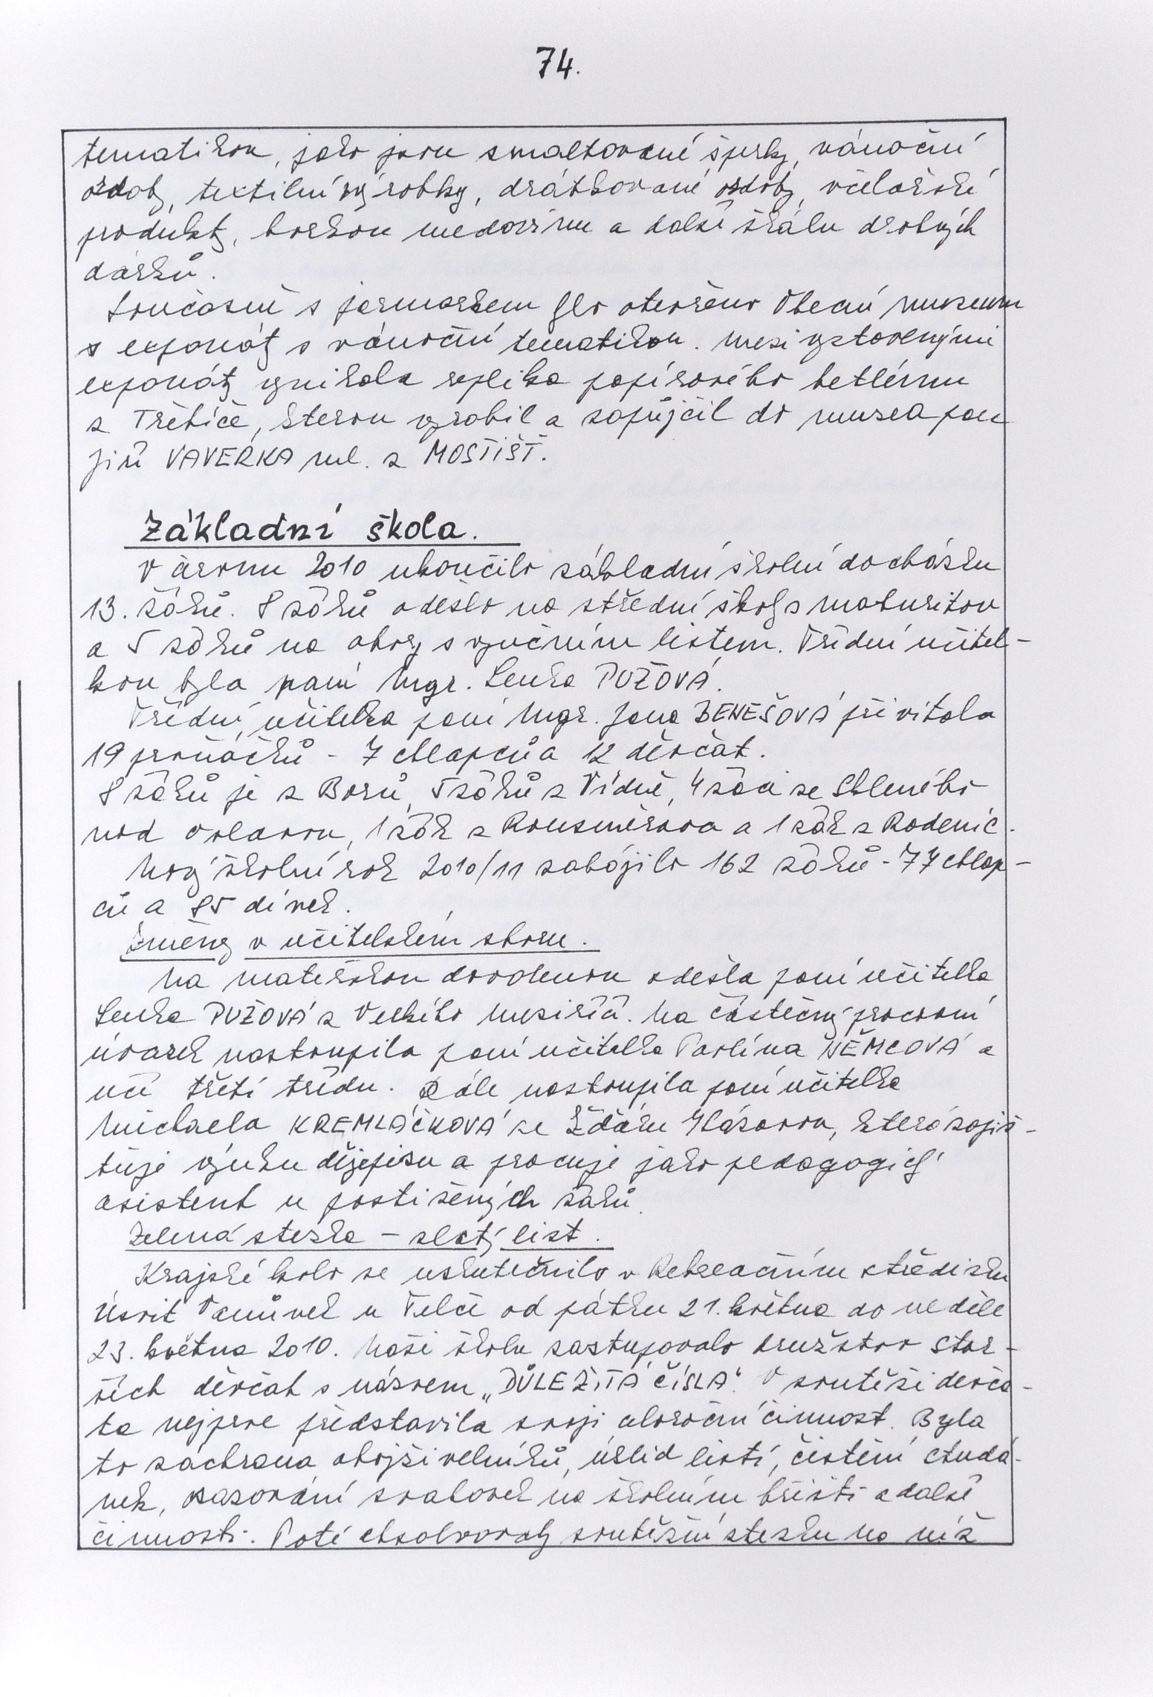 74.
tematikou, jako jsou smaltované šperky, vánoční
ozdoby, textilní výrobky, drátkované ozdoby, včelařské
produkty, horkou medovinu a další škálu drobných
dárků.
Současně s jarmarkem bylo otevřeno Obecní muzeum
s exponáty s vánoční tematikou. Mezi vystavenými
exponáty vynikala replika papírového betlému
z Třebíče, kterou vyrobil a zapůjčil do muzea pan
Jiří VAVERKA ml. z MOSTIŠŤ.
Základní škola.
V červnu 2010 ukončilo základní školní docházku
13. žáků. 8 žáků odešlo na střední školy s maturitou
a 5 žáků na obory s výučním listem. Třídní učitel-
kou byla paní Mgr. Lenka PUŽOVÁ.
Třídní učitelka paní Mgr. Jana BENEŠOVÁ přivítala
19 prvňáčků - 7 chlapců a 12 děvčat.
8 žáků je z Borů, 5 žáků z Vídně, 4 žáci ze Sklenéhо
nad Oslavou, 1 žák z Rousměrova a 1 žák z Radenic.
Nový školní rok 2010/11 zahájilo 162 žáků - 77 chlap-
ců a 85 dívek.
Změny v učitelském sboru.
Na mateřskou dovolenou odešla paní učitelka
Lenka PUŽOVÁ z Velkého Meziříčí. Na částečný pracovní
úvazek nastoupila paní učitelka Pavlína NĚMCOVÁ a
učí třetí třídu. Dále nastoupila paní učitelka
Michaela KREMLÁČKOVÁ ze Žďáru n/Sázavou, která zajiš-
ťuje výuku dějepisu a pracuje jako pedagogický
asistent u postižených žáků.
Zelená stezka - zlatý list.
Krajské kolo se uskutečnilo v Rekreačním středisku
Úsvit Vanůvek u Telče od pátku 21. května do neděle
23. května 2010. Naši školu zastupovalo družstvo star-
ších děvčat s názvem „DŮLEŽITÁ ČÍSLA". V soutěži děvča-
ta nejprve představila svoji celoroční činnost. Byla
to záchrana obojživelníků, úklid listí, čištění studá-
nek, sázování sazenic na školním hřišti a další
činnosti. Poté absolvovaly soutěžní stezku na níž